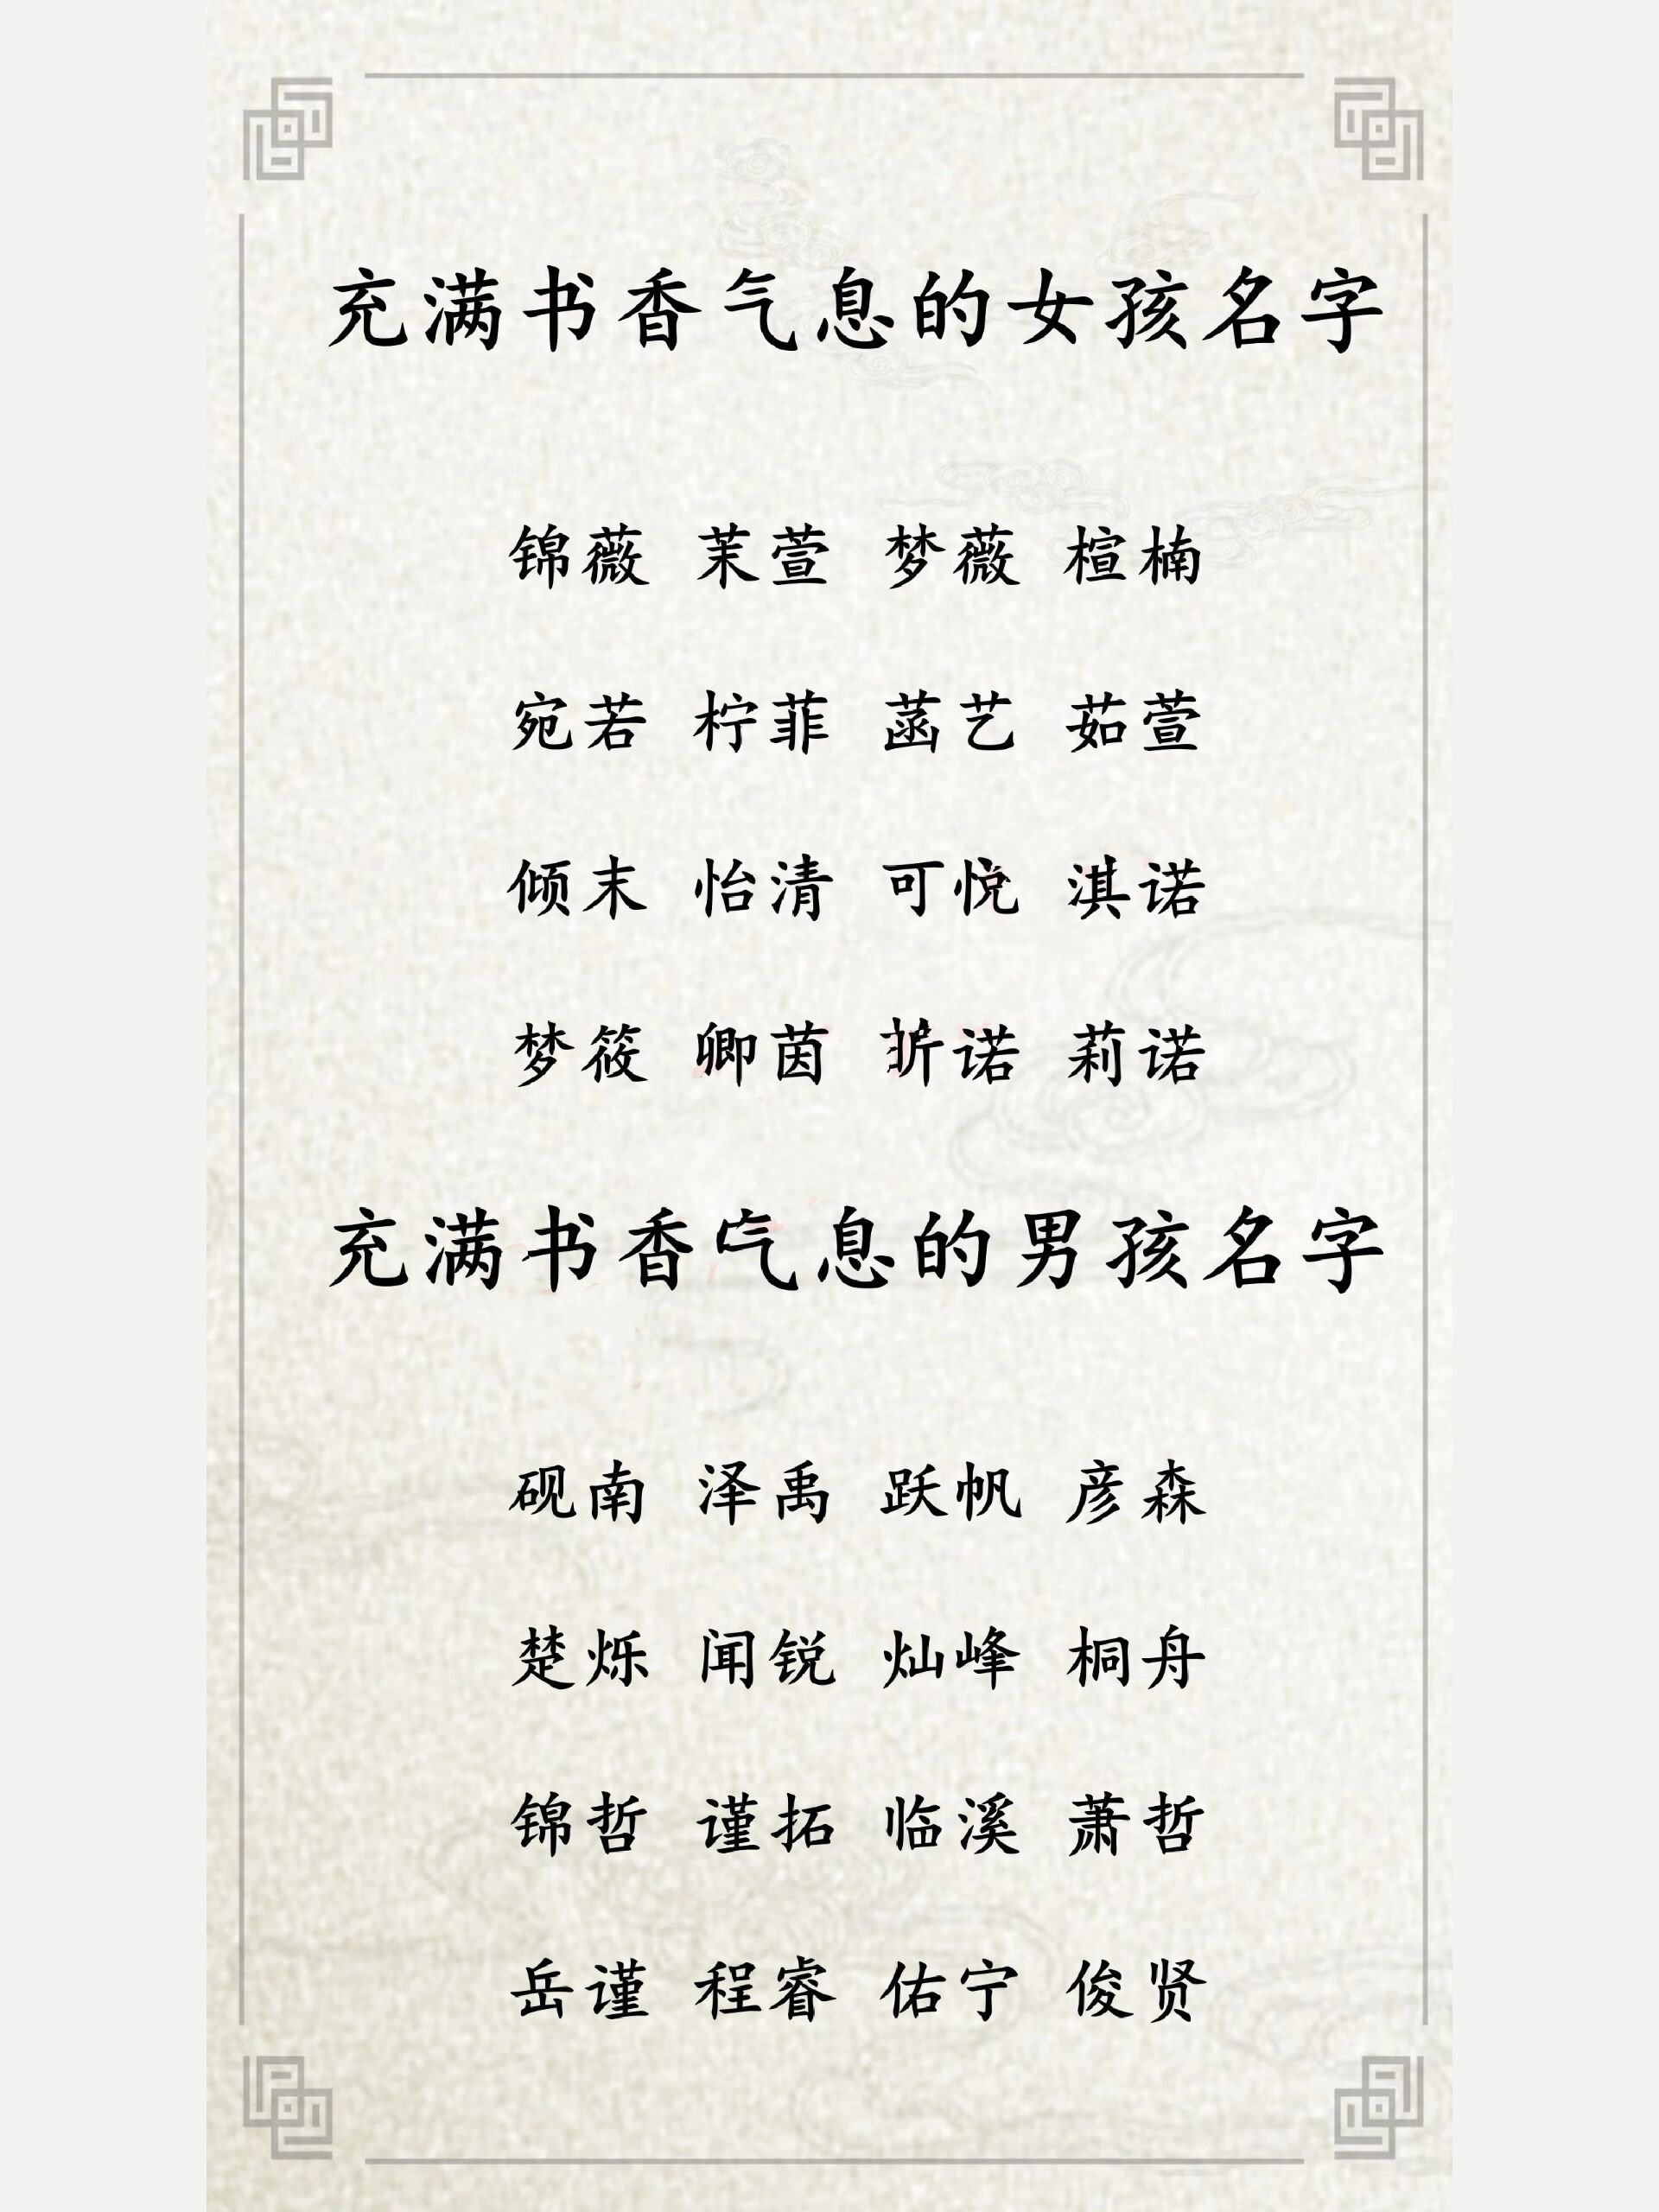 充满书香气息的女孩名字
锦薇 茉萱 梦薇 楦楠
宛若 柠菲 菡艺 茹萱
倾末 怡清 可悦 淇诺
梦筱 卿茵 诺 莉诺
充满书香气息的男孩名字
砚南 泽禹 跃帆 彦森
楚烁 闻锐 灿峰 桐舟
锦哲 谨拓 临溪 萧哲
岳谨 程睿 佑宁 俊贤